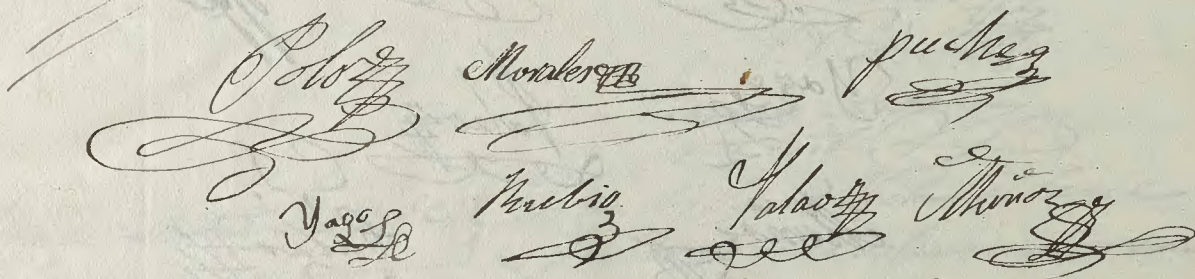 Polo Morales Puche
Yago Rubio Palao Muñoz